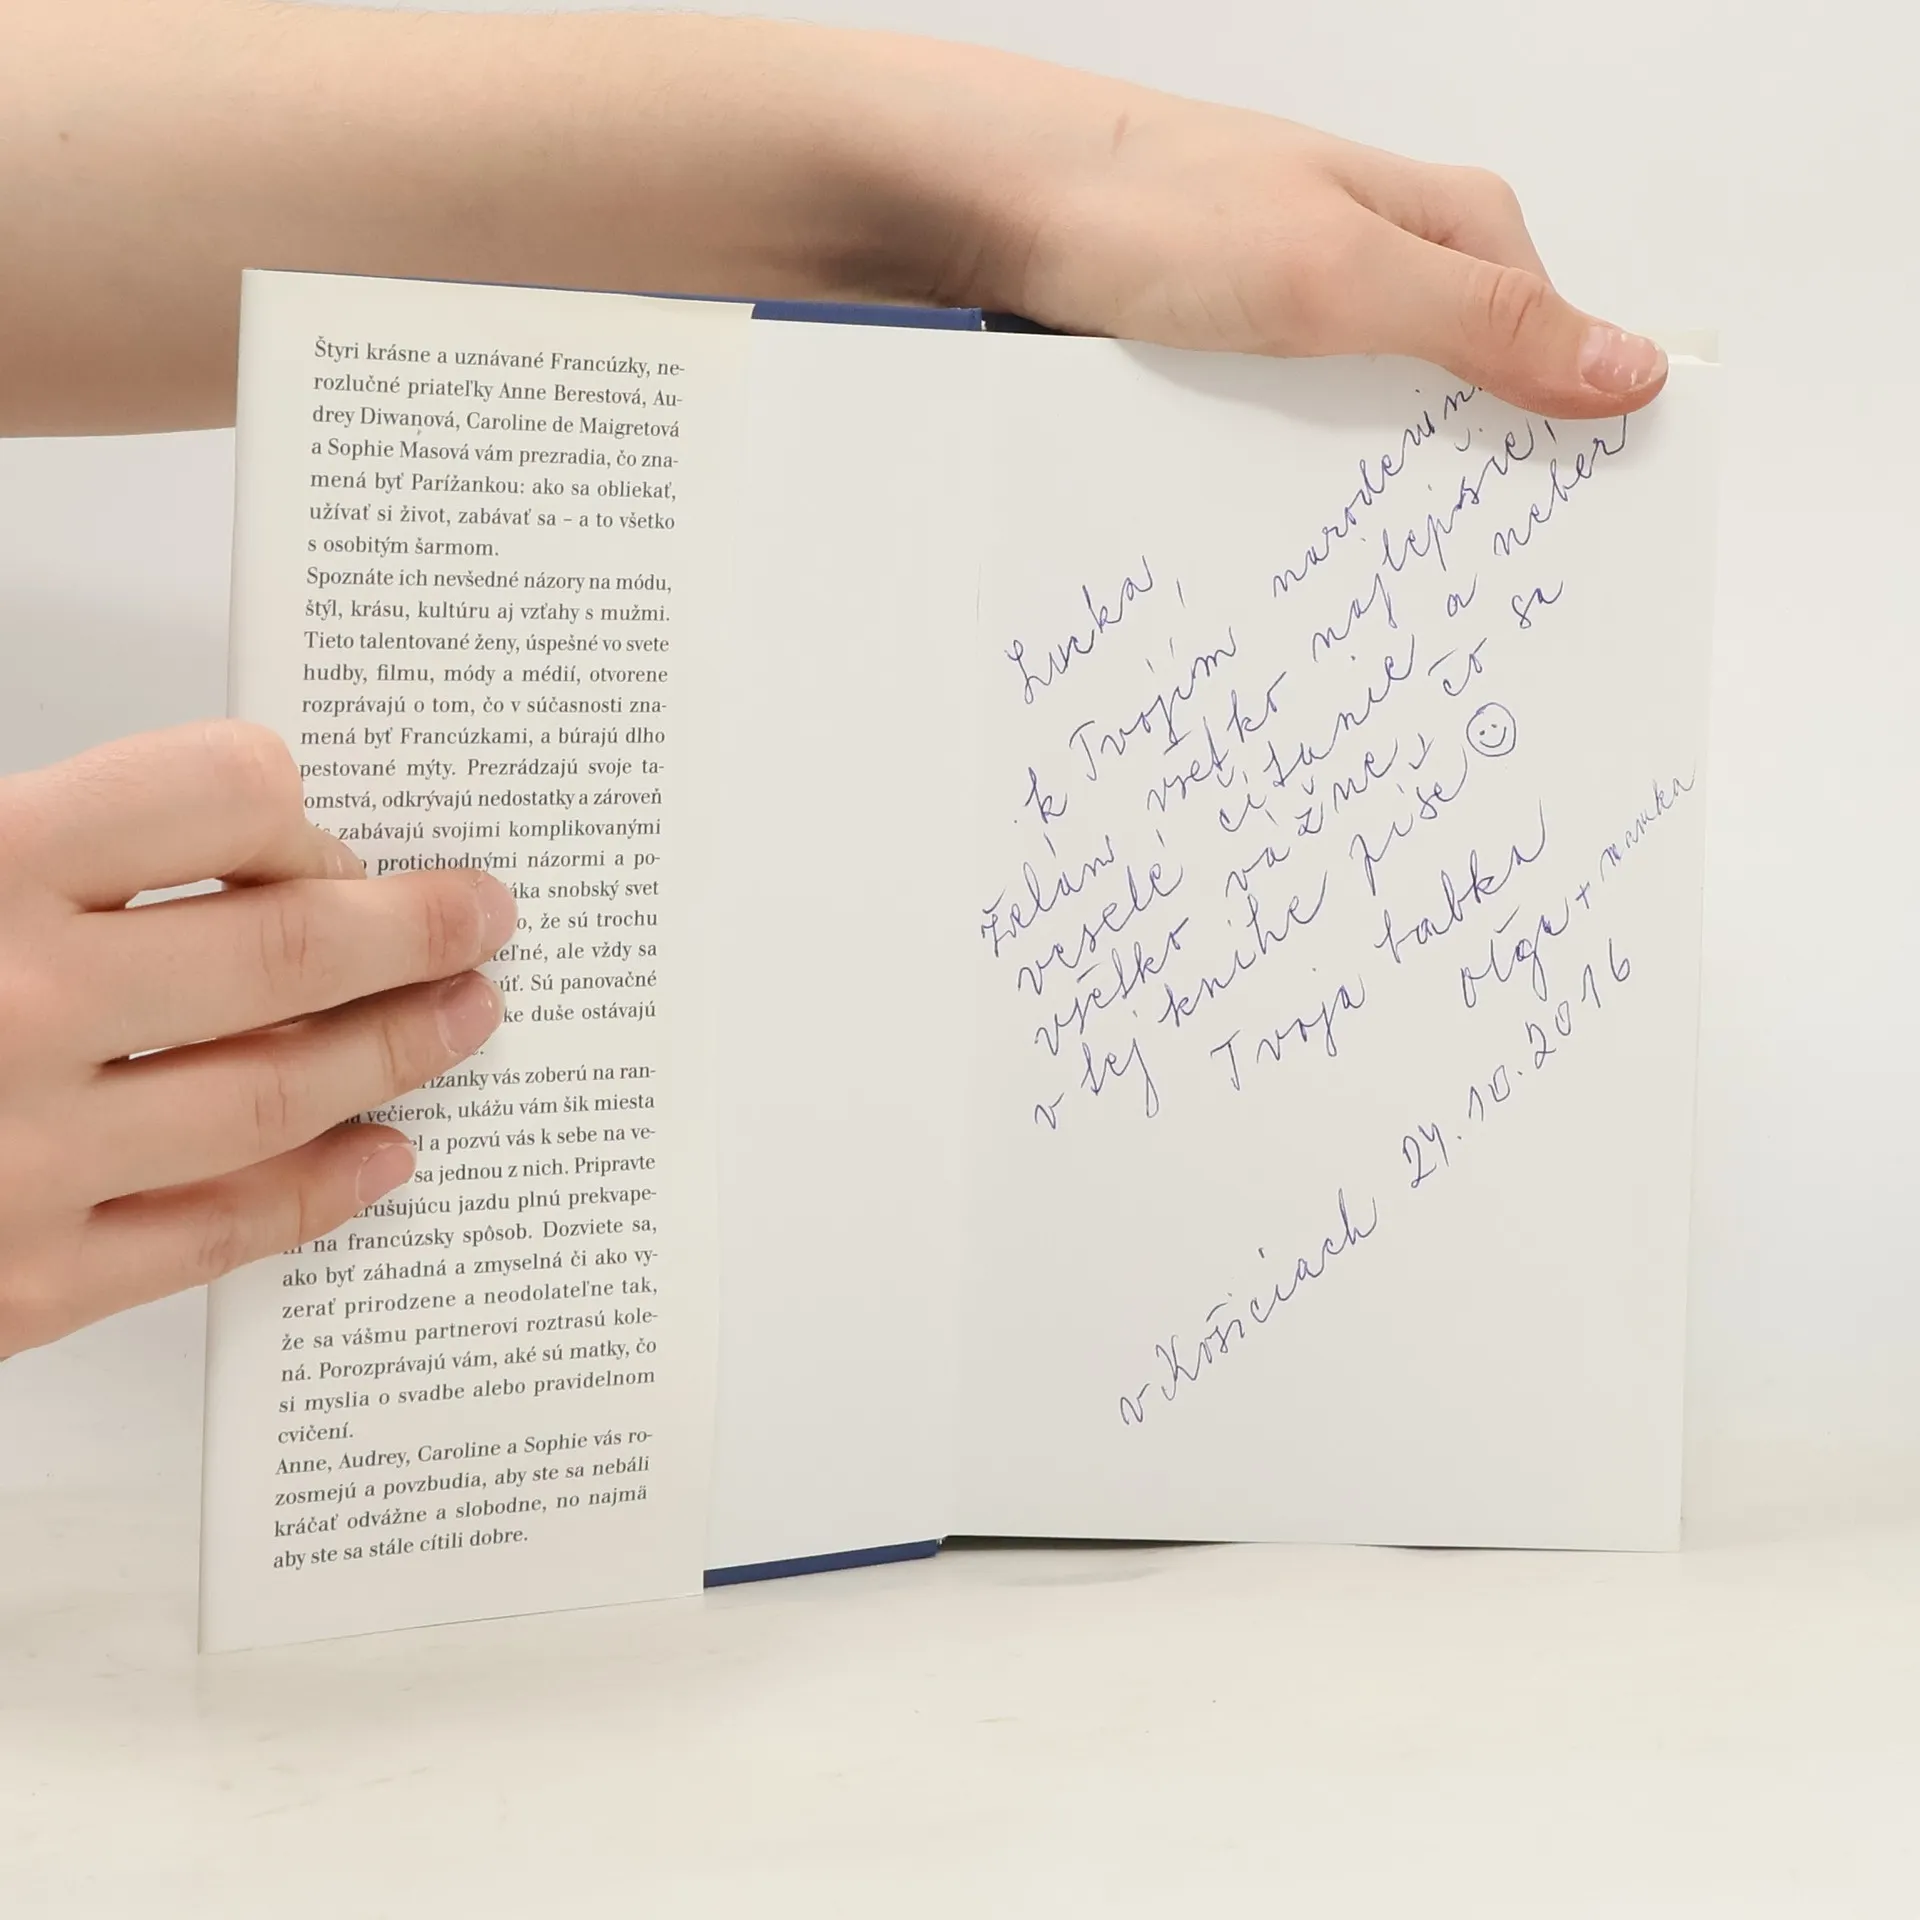 Štyri krásne a uznávané Francúzky, ne-
rozlučné priateľky Anne Berestová, Au-
drey Diwanová, Caroline de Maigretová
a Sophie Masová vám prezradia, čo zna-
mená byť Parížankou: ako sa obliekať,
užívať si život, zabávať sa – a to všetko
s osobitým šarmom.
Spoznáte ich nevšedné názory na módu,
štýl, krásu, kultúru aj vzťahy s mužmi.
Tieto talentované ženy, úspešné vo svete
hudby, filmu, módy a médií, otvorene
rozprávajú o tom, čo v súčasnosti zna-
mená byť Francúzkami, a búrajú dlho
pestované mýty. Prezrádzajú svoje ta-
omstvá, odkrývajú nedostatky a zároveň
zabávajú svojimi komplikovanými
protichodnými názormi a po-
áka snobský svet
o, že sú trochu
teľné, ale vždy sa
úť. Sú panovačné
ke duše ostávajú
ížanky vás zoberú na ran-
večierok, ukážu vám šik miesta
a pozvú vás k sebe na ve-
sa jednou z nich. Pripravte
zrušujúcu jazdu plnú prekvape-
na francúzsky spôsob. Dozviete sa,
ako byť záhadná a zmyselná či ako vy-
zerať prirodzene a neodolateľne tak,
že sa vášmu partnerovi roztrasú kole-
ná. Porozprávajú vám, aké sú matky, čo
si myslia o svadbe alebo pravidelnom
cvičení.
Anne, Audrey, Caroline a Sophie vás ro-
zosmejú a povzbudia, aby ste sa nebáli
kráčať odvážne a slobodne, no najmä
aby ste sa stále cítili dobre.
Lucka,
k Tvojím narodenin
želám všetko najlepšie,
veselé čítanie a neber
všetko vážne, čo sa
v tej knihe píše ☺
Tvoja babka
oľga + mamka
v Košiciach 24. 10. 2016